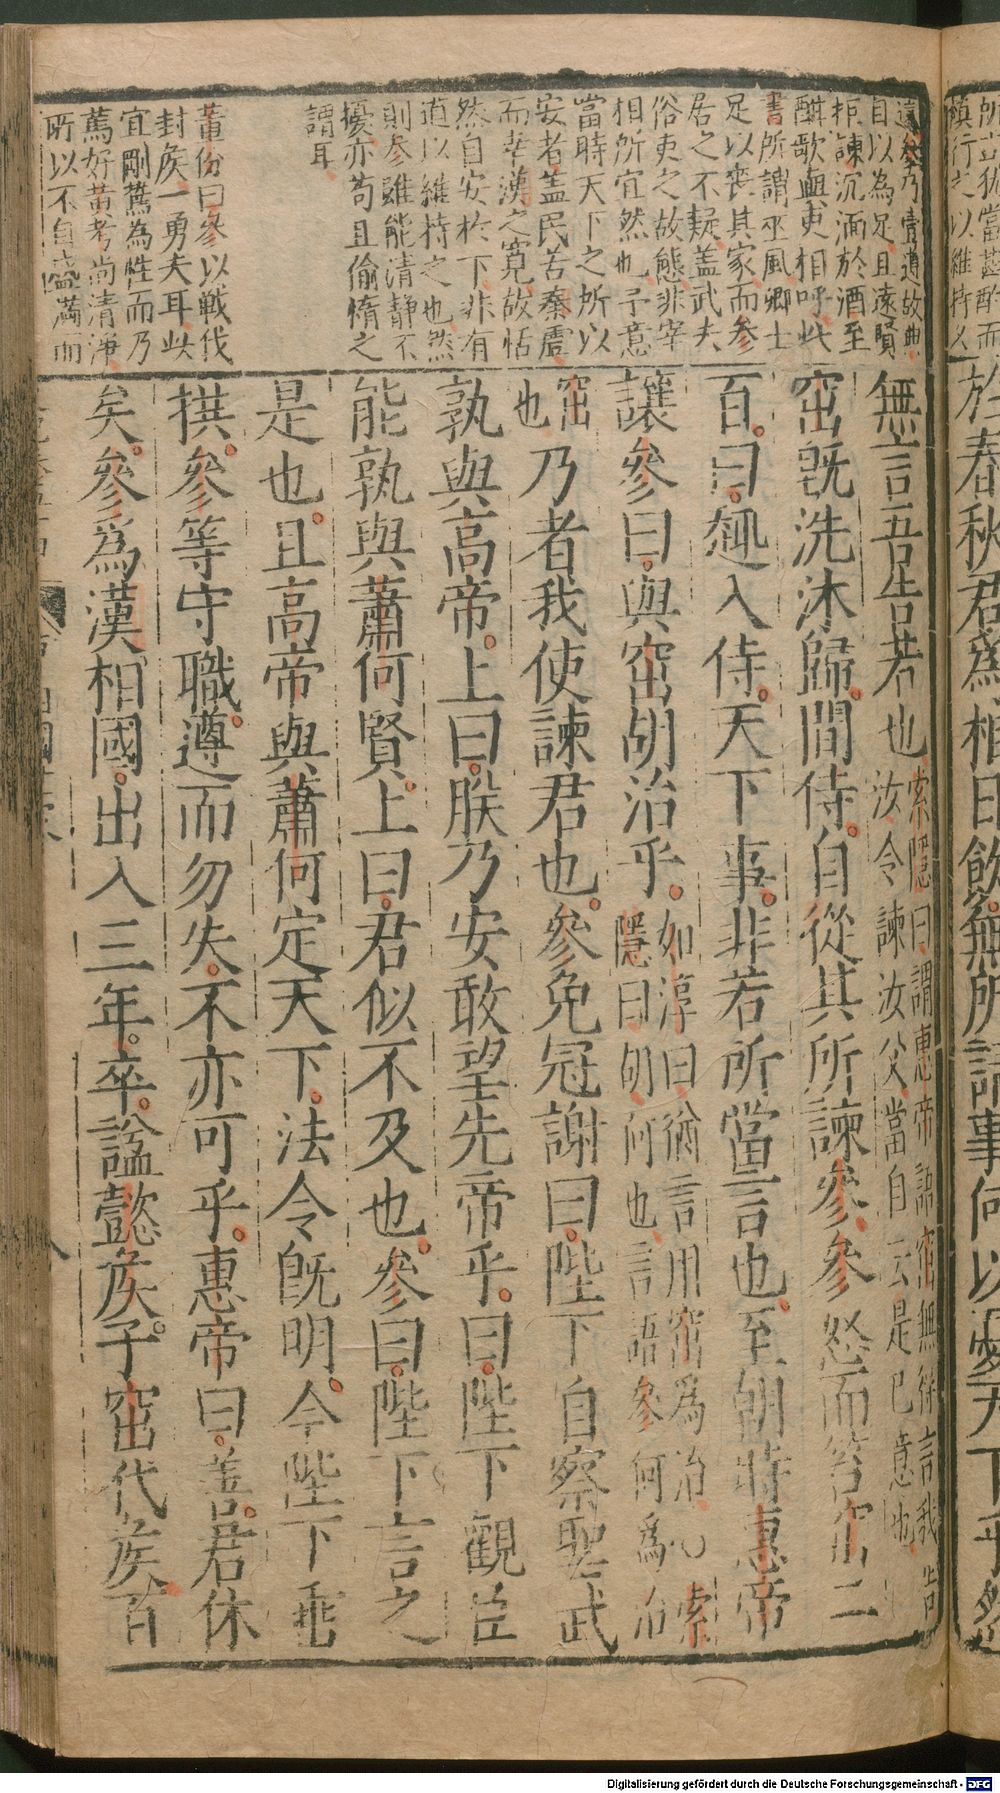 遠參乃壹遵故曲
自以為足且遠賢
拒諫沉湎於酒至
酣歌與吏相呼此
書所謂巫風卿士
足以喪其家而參
居之不疑蓋武夫
俗吏之故態非宰
相所宜然也予意
當時天下之所以
安者蓋民苦秦虐
而幸漢之寬故恬
然自安於下非有
道以維持之也然
則參雖能清靜不
擾亦苟且偷惰之
謂耳
董份曰參以戰伐
封侯一勇夫耳此
宜剛萬為性而乃
蔫好黃老尚清淨
所以不自滿而
無言吾告若也
索隱曰謂惠帝語窋無得言我告
汝令諫汝父當自云是已意也
窋旣洗沐歸間侍自從其所諫參參怒而笞窋二
百曰趣入侍天下事非若所當言也至朝時惠帝
讓參曰與窋胡治乎
如淳曰猶言用窋為治 索
隱曰胡何也言語參何為治
窋
也
乃者我使諫君也參免冠謝曰陛下自察聖武
孰與高帝上曰朕乃安敢望先帝乎曰陛下觀臣
能孰與蕭何賢上曰君似不及也參曰陛下言之
是也且高帝與蕭何定天下法令旣明今陛下垂
拱參等守職遵而勿失不亦可乎惠帝曰善君休
矣參為漢相國出入三年卒謚懿侯子窋代侯百
八
於春秋君為相日飲無所請事何以憂天下乎然
Digitalisierung gefördert durch die Deutsche Forschungsgemeinschaft - DFG